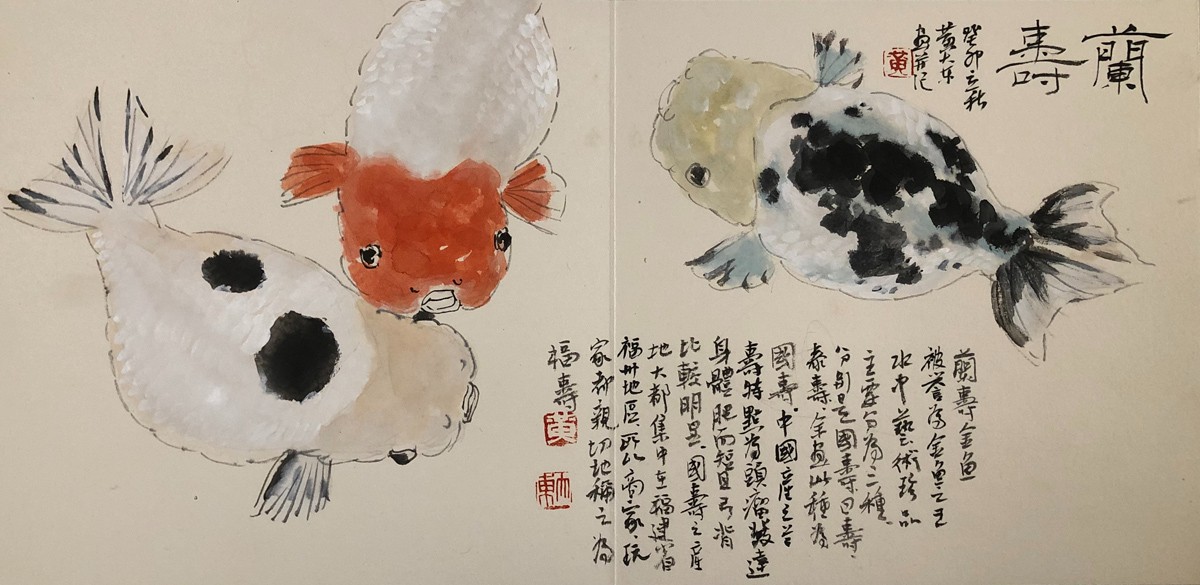 蘭壽
癸卯之秋
黄大
画并记
黄
蘭壽金魚
被誉為金魚之王
水中藝術珍品
主要分為三種
分别是國壽日壽
泰壽余画此種為
國壽中國産之兰
壽特點為頭瘤發達
身體肥而短且弓背
比較明显國壽之産
地大都集中在福建省
福州地區所以商家玩
家都親切地稱之為
福壽
黄